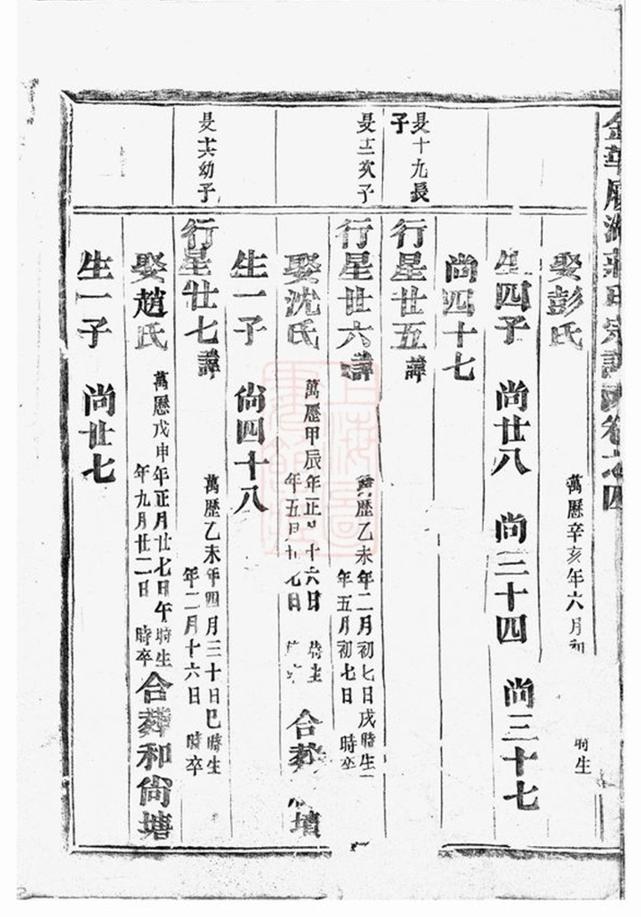 金華
宗譜
卷之四
娶彭氏 萬歷辛亥年六月初 時生
生四子 尚廿八 尚三十四 尚三十七
尚四十七
旻十九長子
行星廿五諱
旻十二次子
行星廿六諱 歷乙未年二月初七日戌時生
年五月初七日 時卒
娶沈氏 萬歷甲辰年正月十六日 時生
年五月 七日
合葬 墳
生一子 尚四十八
旻十六幼子
行星廿七諱 萬歷乙未年四月三十日巳時生
年二月十六日 時卒
娶趙氏 萬歷戊申年正月廿七日午時生
年九月廿二日 時卒
合葬和尚塘
生一子 尚廿七